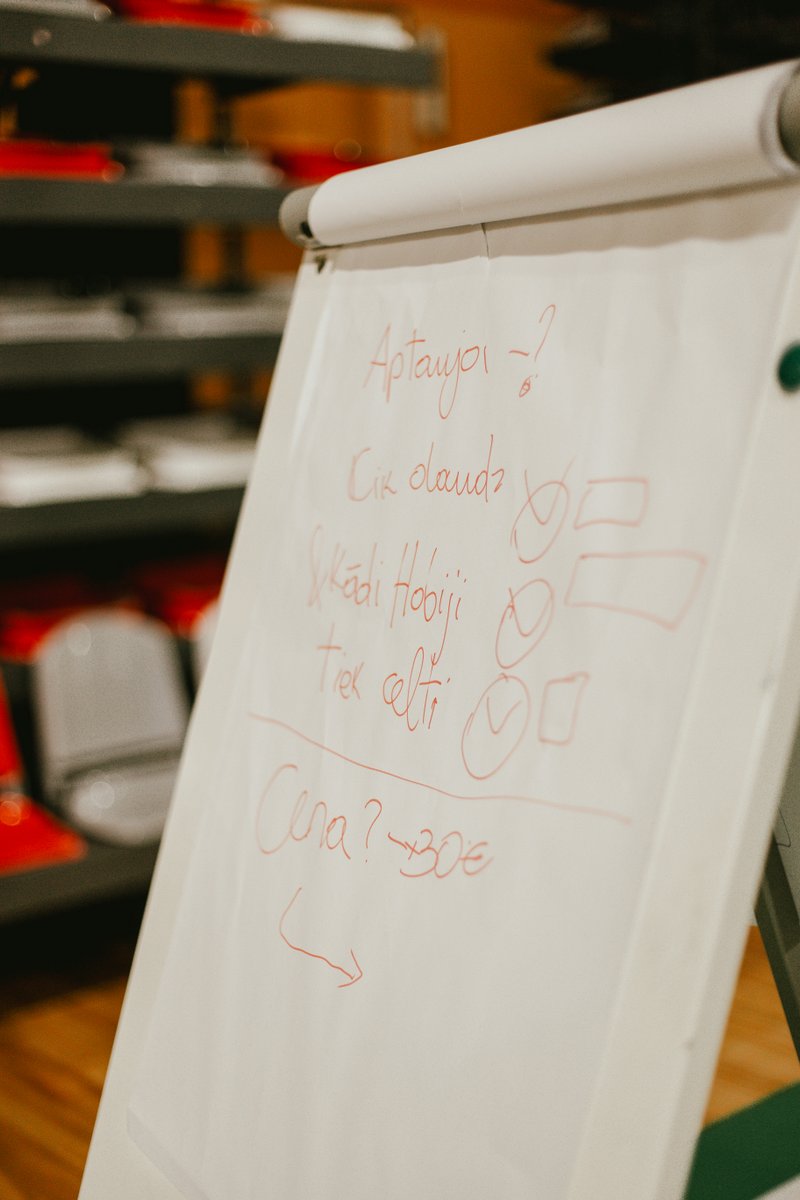 Aptauja -?
Cik daudz
Kādi Hobiji
tiek celti
Cena? → 30€